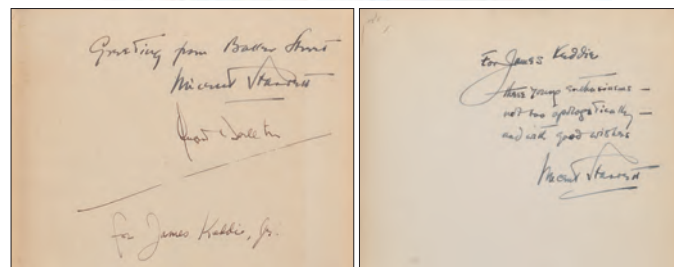 Greetings from Baker Street
Vincent Starrett
For James Keddie, Jr.
For James Keddie
these young enthusiasms —
not too apologetically —
and with good wishes
Vincent Starrett